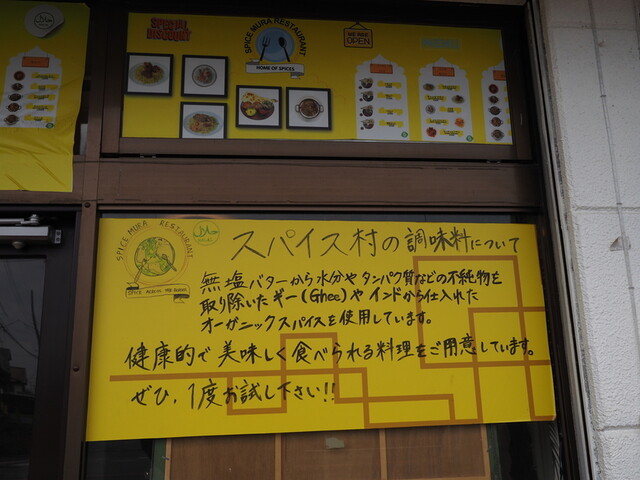 SPECIAL DISCOUNT
SPICE MURA RESTAURANT
HOME OF SPICES
WE ARE OPEN
SPICE MURA RESTAURANT
スパイス村の調味料について
無塩バターから水分やタンパク質などの不純物を
取り除いたギー(Ghee)やインドから仕入れた
オーガニックスパイスを使用しています。
健康的で美味しく食べられる料理をご用意しています。
ぜひ、1度お試し下さい!!